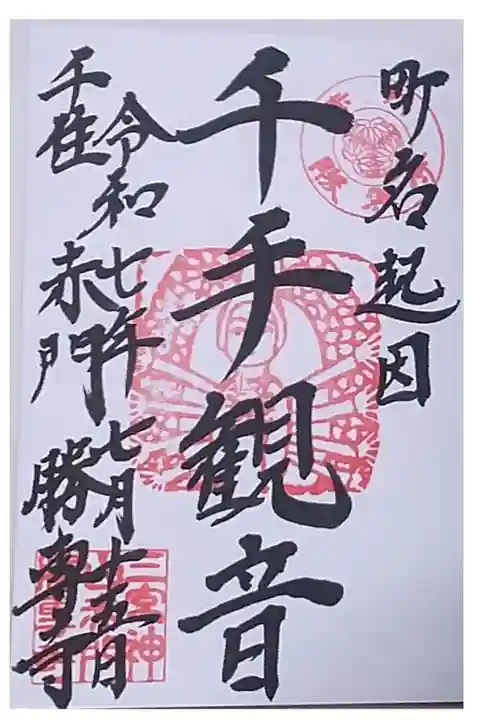 町名起因
千手観音
令和七年七月十五日
千住 赤門 勝専寺